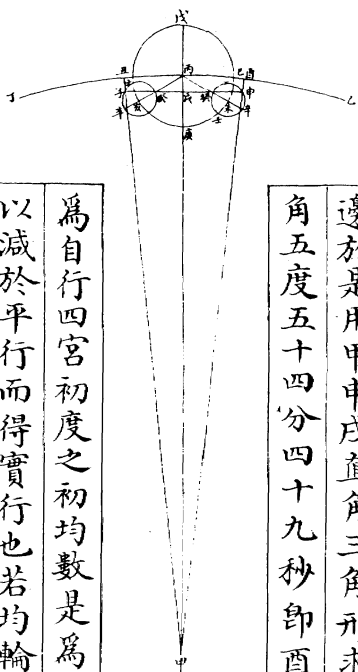 戊
丑
丙
巳
酉
丁
乙
子
申
辛
庚
壬
甲
邊於是用甲申戌直角三角形求
角五度五十四分四十九秒卽酉
爲自行四宮初度之初均數是爲
以減於平行而得實行也若均輪